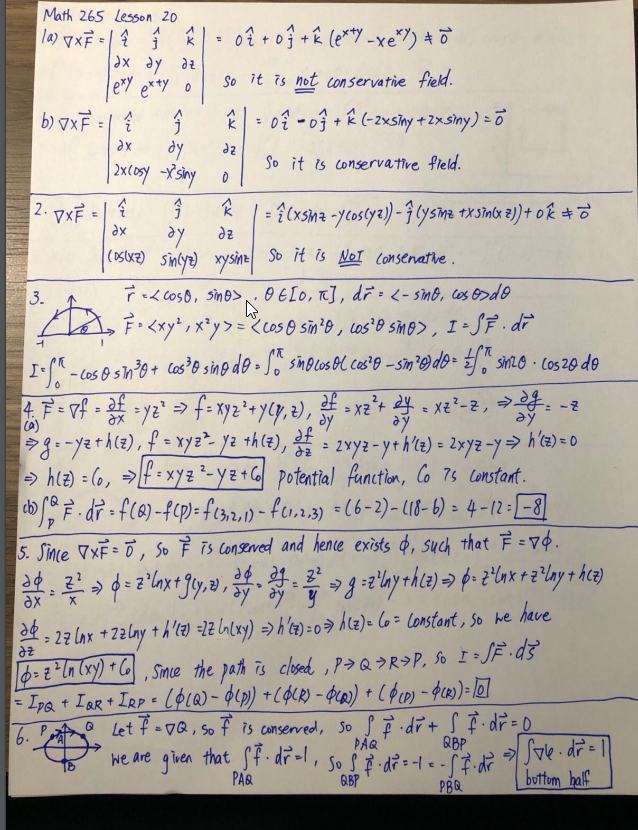 Math 265 Lesson 20
1a) ∇×F⃗ = | î ĵ k̂ | = 0î + 0ĵ + k̂ (e^(x+y) - xe^(xy)) ≠ 0⃗
∂x ∂y ∂z
e^(xy) e^(x+y) 0 So it is not conservative field.
b) ∇×F⃗ = | î ĵ k̂ | = 0î - 0ĵ + k̂ (-2xsiny + 2xsiny) = 0⃗
∂x ∂y ∂z
2xcosy -x²siny 0 So it is conservative field.
2. ∇×F⃗ = | î ĵ k̂ | = î(xsinz - ycos(yz)) - ĵ(ysinz + xsin(xz)) + 0k̂ ≠ 0⃗
∂x ∂y ∂z
cos(xz) sin(yz) xysinz So it is NOT conservative.
3. r⃗ = <cosθ, sinθ>, θ∈[0, π], dr⃗ = <-sinθ, cosθ>dθ
-1 θ 1 F⃗ = <xy², x²y> = <cosθ sin²θ, cos²θ sinθ>, I = ∫F⃗·dr⃗
I = ∫₀^π -cosθ sin³θ + cos³θ sinθ dθ = ∫₀^π sinθcosθ(cos²θ - sin²θ)dθ = ½∫₀^π sin2θ · cos2θ dθ
4. F⃗ = ∇f = ∂f/∂x = yz² ⇒ f = xyz² + y(y,z), ∂f/∂y = xz² + ∂y/∂y = xz² - z, ⇒ ∂g/∂y = -z
(a)
⇒ g = -yz + h(z), f = xyz² - yz + h(z), ∂f/∂z = 2xyz - y + h'(z) = 2xyz - y ⇒ h'(z) = 0
⇒ h(z) = C₀, ⇒ f = xyz² - yz + C₀ potential function, C₀ is constant.
(b) ∫_P^Q F⃗·dr⃗ = f(Q) - f(P) = f(3,2,1) - f(1,2,3) = (6-2) - (18-6) = 4-12 = -8
5. Since ∇×F⃗ = 0⃗, so F⃗ is conserved and hence exists ϕ, such that F⃗ = ∇ϕ.
∂ϕ/∂x = z²/x ⇒ ϕ = z²lnx + g(y,z), ∂ϕ/∂y = ∂g/∂y = z²/y ⇒ g = z²lny + h(z) ⇒ ϕ = z²lnx + z²lny + h(z)
∂ϕ/∂z = 2z lnx + 2z lny + h'(z) = 2z ln(xy) ⇒ h'(z) = 0 ⇒ h(z) = C₀ = constant, so we have
ϕ = z²ln(xy) + C₀, since the path is closed, P→Q→R→P, so I = ∫F⃗·ds⃗
= I_PQ + I_QR + I_RP = (ϕ(Q) - ϕ(P)) + (ϕ(R) - ϕ(Q)) + (ϕ(P) - ϕ(R)) = 0
6. P A Q B Let f⃗ = ∇Q, so f⃗ is conserved, so ∫_PAQ f⃗·dr⃗ + ∫_QBP f⃗·dr⃗ = 0
we are given that ∫_PAQ f⃗·dr⃗ = 1, so ∫_QBP f⃗·dr⃗ = -1 = -∫_PBQ f⃗·dr⃗ ⇒ ∫∇φ·dr⃗ = 1
bottom half